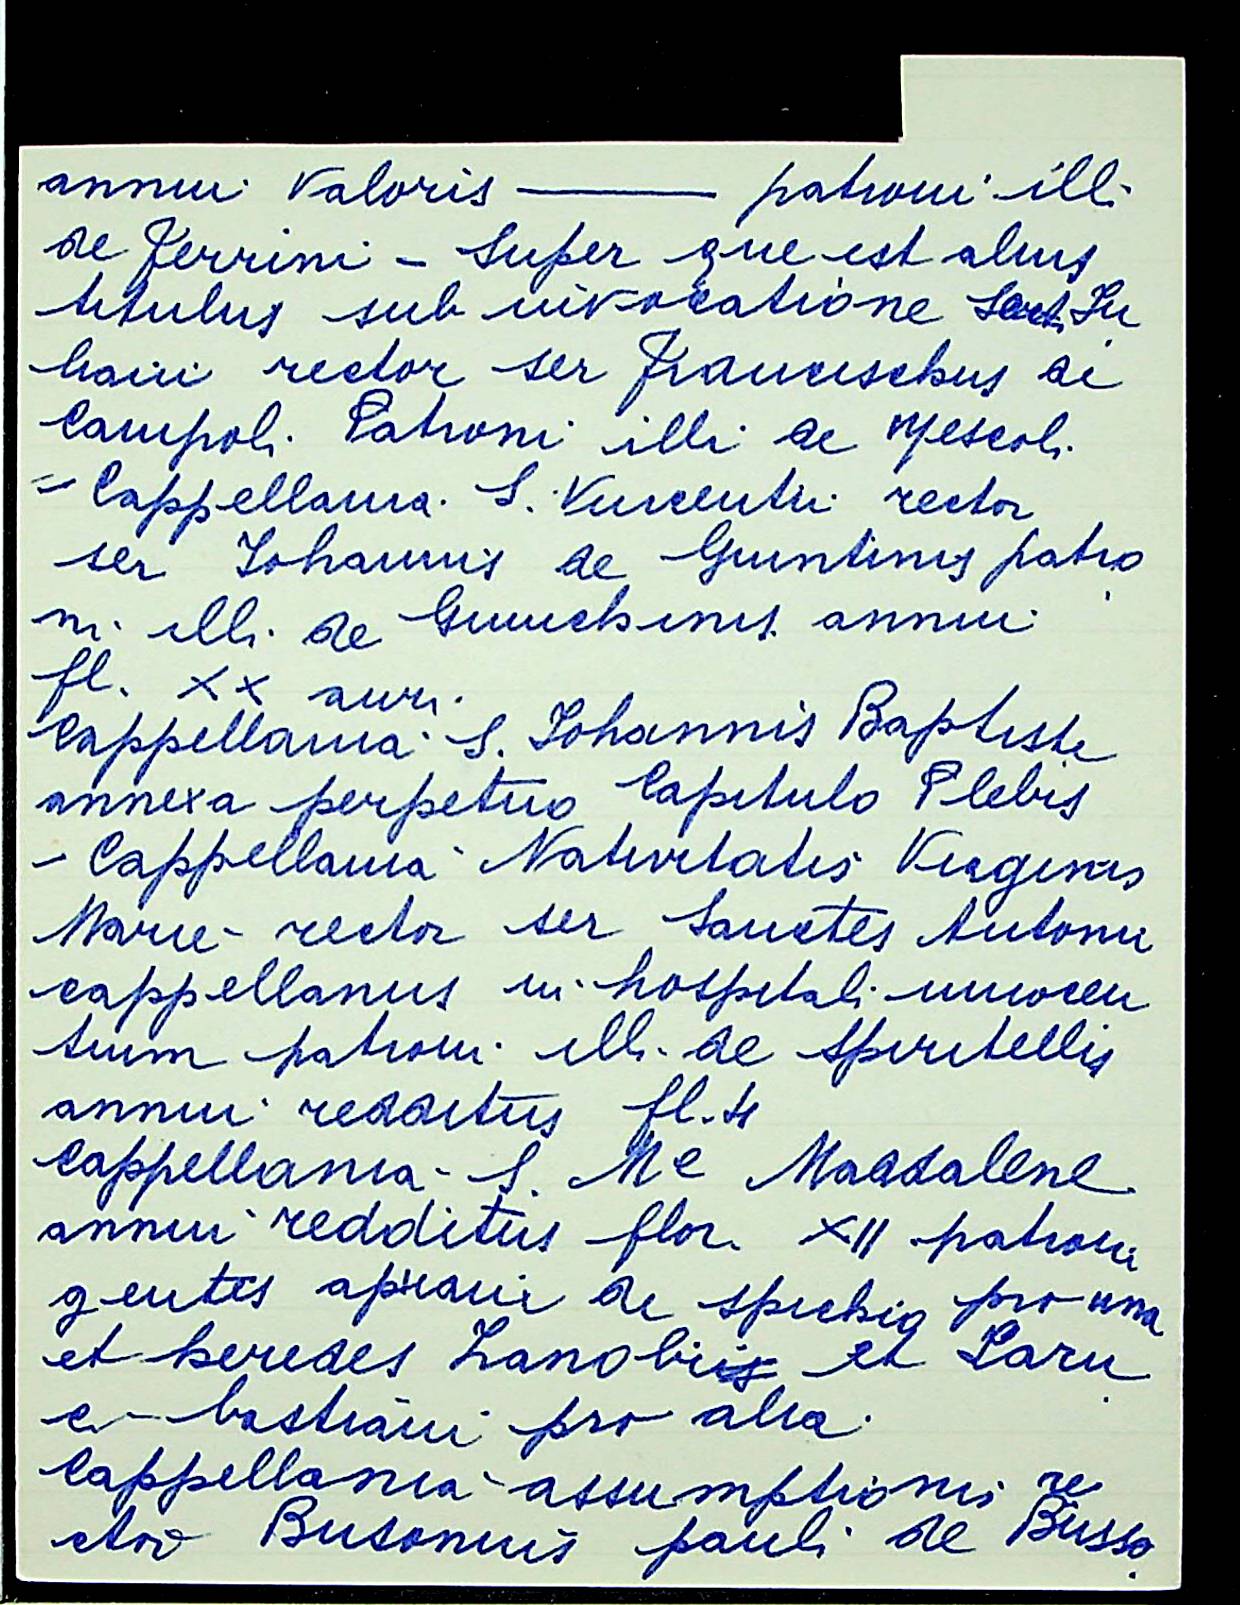 annui valoris —— patroni illi
de Ferrini - Super que est alius
titulus sub invocatione Sancti Ju
liani rector ser Francischus de
Campoli. Patroni illi de Mescoli.
= Cappellania. S. Vincentii rector
ser Johannis de Giuntinis patro
ni illi de Guucchinis annui
fl. XX auri.
Cappellania S. Johannis Baptiste
annexa perpetuo Capitulo Plebis
- Cappellania Nativitatis Virginis
Marie - rector ser Sanctes Antonii
cappellanus in hospitali innocen
tium patroni illi de Spiritellis
annui redditus fl. 4
Cappellania - S. Me Maddalene
annui redditus flor. XII patroni
gentes de spichio pro una
et heredes Zanobii et
bastiani pro alia.
Cappellania assumptionis re
ctor pauli de Busso